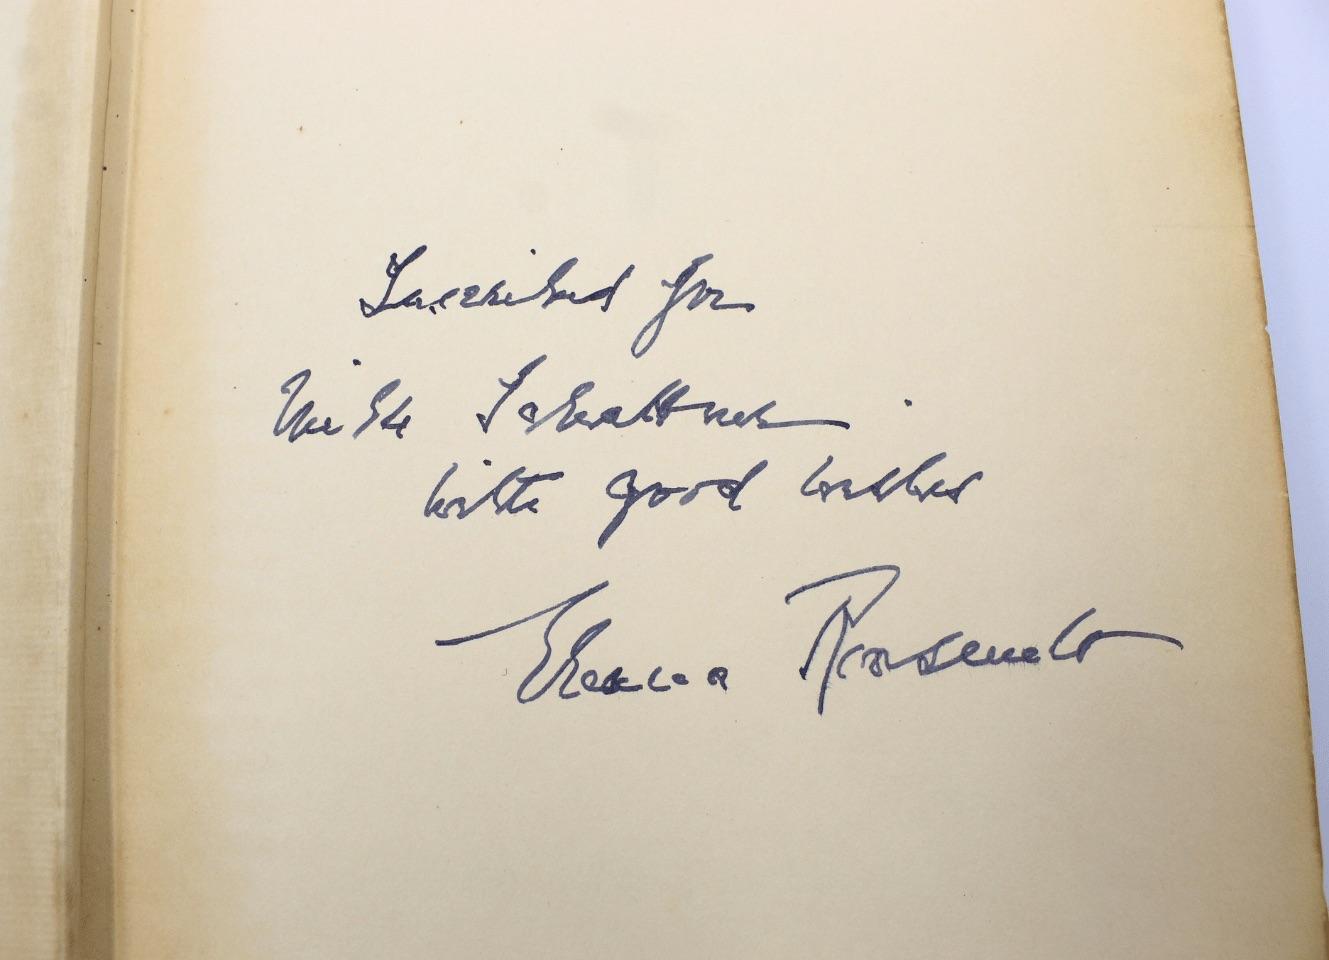 Inscribed for
Mike Schattner
with good wishes
Eleanor Roosevelt